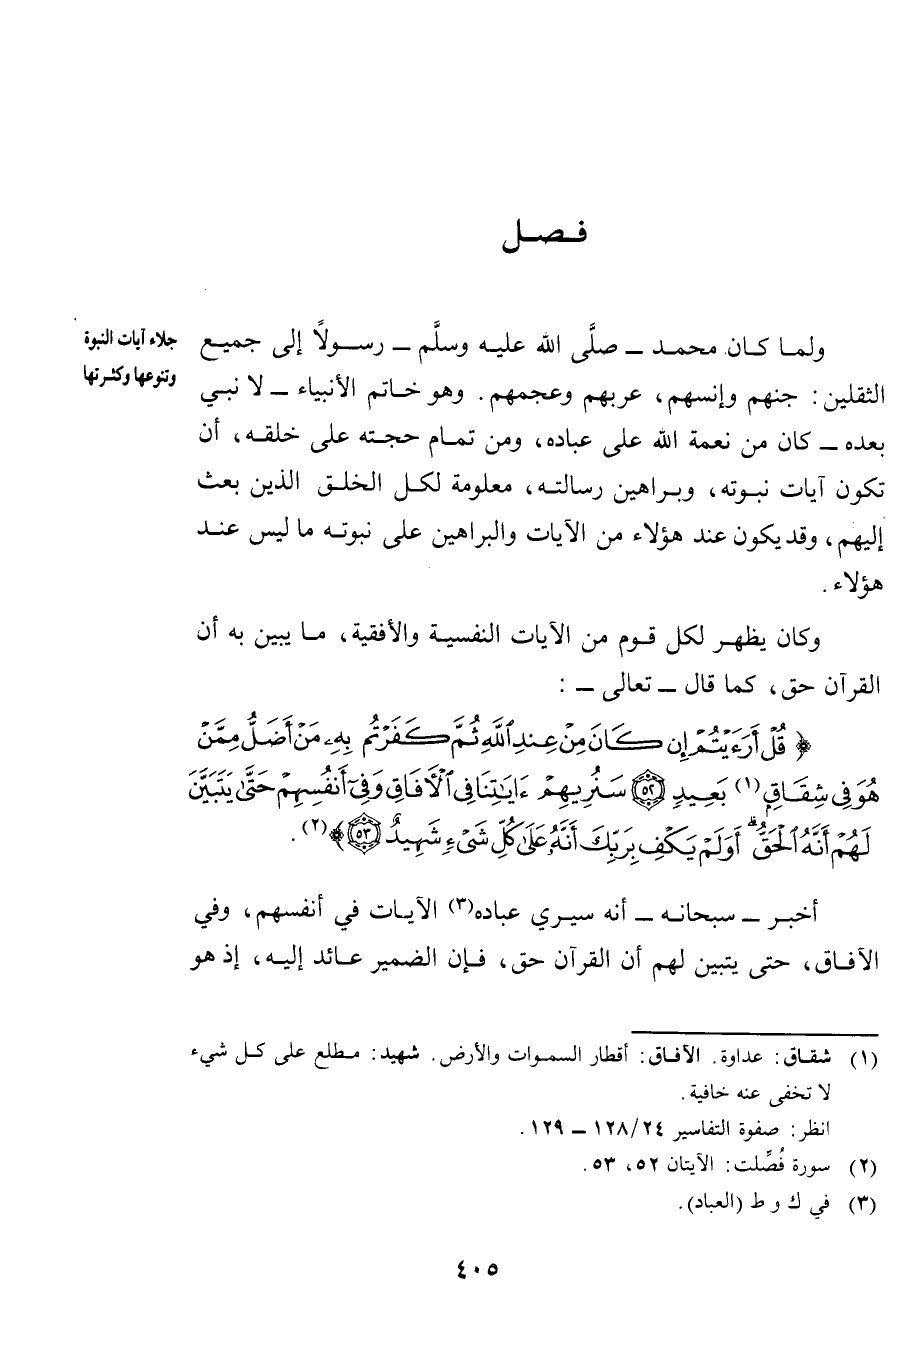 فصل
ولما كان محمد ــ صلَّى الله عليه وسلَّم ــ رسولاً إلى جميع
جلاء آيات النبوة
وتنوعها وكثرتها
الثقلين: جنهم وإنسهم، عربهم وعجمهم. وهو خاتم الأنبياء ــ لا نبي
بعده ــ كان من نعمة الله على عباده، ومن تمام حجته على خلقه، أن
تكون آيات نبوته، وبراهين رسالته، معلومة لكل الخلق الذين بعث
إليهم، وقد يكون عند هؤلاء من الآيات والبراهين على نبوته ما ليس عند
هؤلاء.
وكان يظهر لكل قوم من الآيات النفسية والأفقية، ما يبين به أن
القرآن حق، كما قال ــ تعالى ــ :
﴿قُلْ أَرَءَيْتُمْ إِن كَانَ مِنْ عِندِ ٱللَّهِ ثُمَّ كَفَرْتُم بِهِۦ مَنْ أَضَلُّ مِمَّنْ
هُوَ فِى شِقَاقٍ(١) بَعِيدٍ ﴿٥٢﴾ سَنُرِيهِمْ ءَايَٰتِنَا فِى ٱلْءَافَاقِ وَفِىٓ أَنفُسِهِمْ حَتَّىٰ يَتَبَيَّنَ
لَهُمْ أَنَّهُ ٱلْحَقُّ ۗ أَوَلَمْ يَكْفِ بِرَبِّكَ أَنَّهُۥ عَلَىٰ كُلِّ شَىْءٍ شَهِيدٌ ﴿٥٣﴾﴾(٢).
أخبر ــ سبحانه ــ أنه سيري عباده(٣) الآيات في أنفسهم، وفي
الآفاق، حتى يتبين لهم أن القرآن حق، فإن الضمير عائد إليه، إذ هو
(١) شقاق: عداوة. الآفاق: أقطار السموات والأرض. شهيد: مطلع على كل شيء
لا تخفى عنه خافية.
انظر: صفوة التفاسير ١٢٨/٢٤ ــ ١٢٩.
(٢) سورة فُصِّلت: الآيتان ٥٢، ٥٣.
(٣) في ك و ط (العباد).
٤٠٥